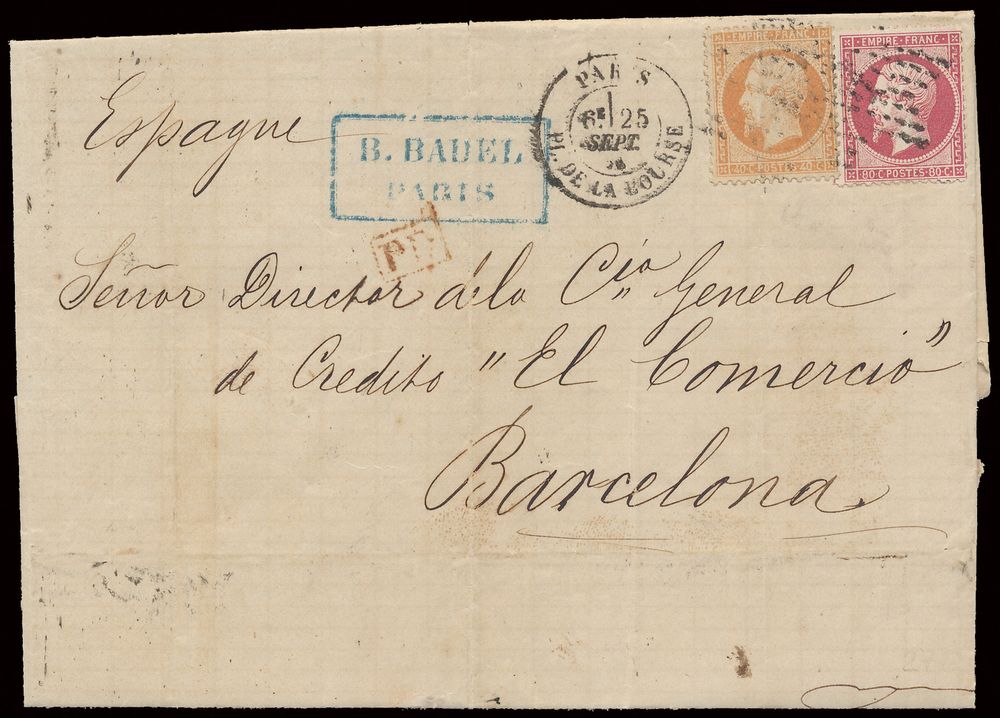 Espagne
B. BADEL
PARIS
PARIS
6E 25
SEPT.
PL. DE LA BOURSE
EMPIRE FRANC
40 C POSTES 40 C
EMPIRE FRANC
80 C POSTES 80 C
PD
Señor Director de la Cia General
de Credito "El Comercio"
Barcelona